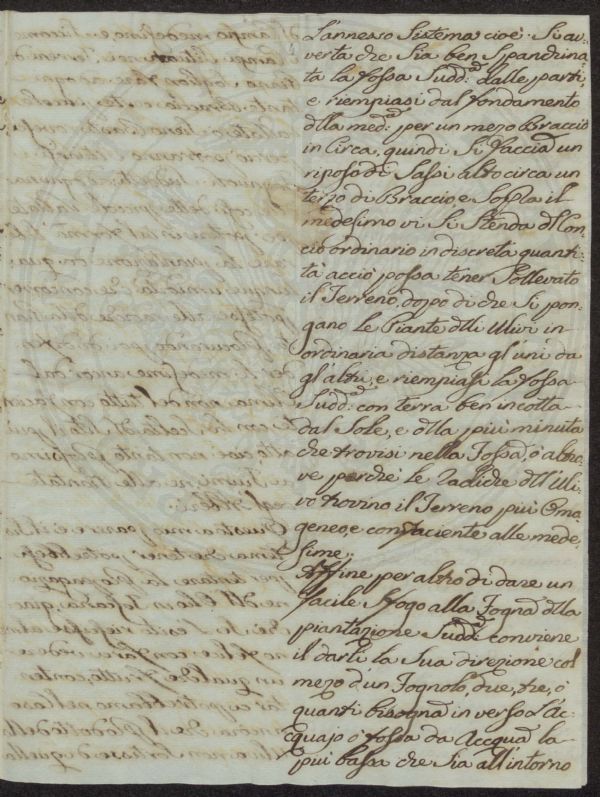 L'annesso Sistema cioè. Si av,
verta che Sia ben Spandina,
ta la fossa Sudd.ª dalle parti,
e riempiasi dal fondamento
dlla med.ª per un mezo Braccio
in Circa, quindi Si faccia un
riposo di Sassi alto circa un
terzo di Braccio, e Sopla il
medesimo vi Si Stenda dl Con,
cio ordinario in discreta quanti,
tà acciò possa tener Sollevato
il Terreno, dopo di che Si pon,
gano le Piante dlli Ulivi in
ordinaria distanza gl'uni da
gl'altri, e riempiasi la fossa
Sudd.ª con terra ben incotta
dal Sole, e dlla più minuta
che trovisi nella Fossa, ò altro,
ve perchè le Radiche dll'Uli,
vo trovino il Terreno più Omo,
geneo, e confaciente alle mede,
sime;
Affine per altro di dare un
facile Sfogo alla Fogna dlla
piantazione Sudd.ª conviene
il darli la Sua direzione col
mezo d'un Fognolo, due, tre, ò
quanti bisogna in verso l'Ac,
quajo ò fossa da Acqua la
più bassa che Sia all'intorno